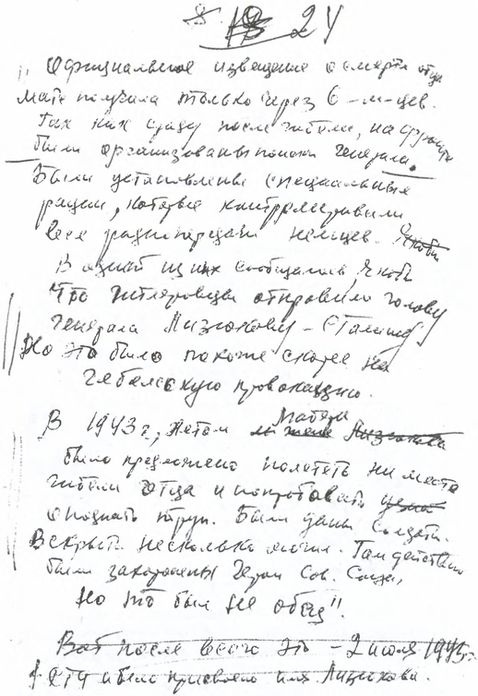 24
"Официальное извещение о смерти отца
мать получила только через 6 - м-цев.
Так как сразу после гибели, на фронте
были организованы поиски генерала.
Были установлены специальные
рации, которые контролировали
все радиопередачи немцев. Якобы
В одной из них сообщалось, якобы
что гитлеровцы отправили голову
генерала Лизюкова - Сталину
Но это было похоже скорее на
гебельскую провокацию.
В 1943 г, летом матери Лизюкова
было предложено полететь на место
гибели отца и попробовать
опознать труп. Были даны солдаты.
Вскрыли несколько могил. Там действит
были захоронены Герои Сов. Союза,
но то был не отец".
Вот после всего это - 2 июля 1945 г
и было присвоено имя Лизюкова.